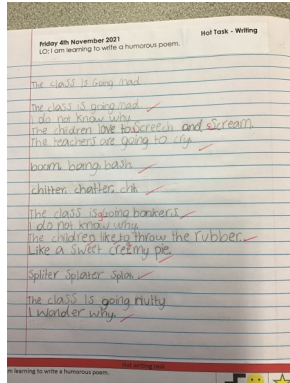 Hot Task - Writing
Friday 4th November 2021
LO: I am learning to write a humorous poem.
The class is Going mad
The class is going mad
I do not know why
The children love to screech and scream
The teachers are going to cry
boom, bang, bash
chitter, chatter, chit
The class is going bonkers
I do not know why
The children like to throw the rubber
Like a sweet creemy pie
Spliter Splater Splat
The class is going nutty
I wonder why.
Hot writing task
m learning to write a humorous poem.